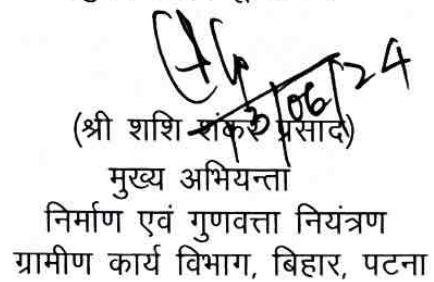 (श्री शशि शंकर प्रसाद)
मुख्य अभियन्ता
निर्माण एवं गुणवत्ता नियंत्रण
ग्रामीण कार्य विभाग, बिहार, पटना